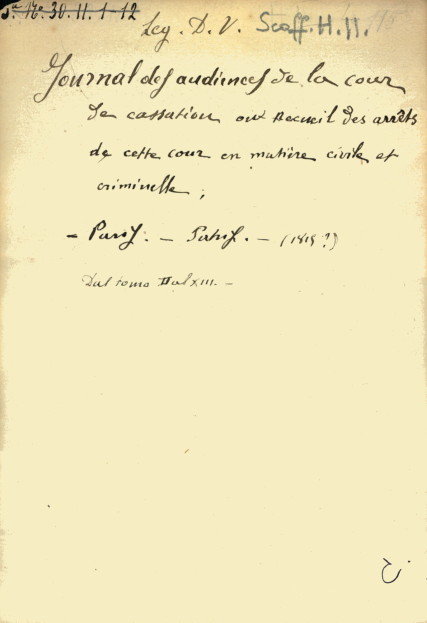 Sª Nº. 30. 11. 1-12
Leg. D. V. Scaff. H. 11.
Journal des audiences de la cour
de cassation, ou Recueil des arrêts
de cette cour en matière civile et
criminelle;
- Paris. - Patris. - (1819?)
Dal tomo II al XIII. -